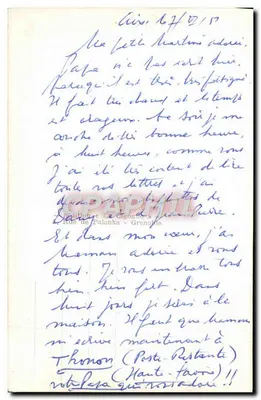 Ma petite Martine adorée,
Papa n'a pas écrit hier,
parce qu'il est très très fatigué.
Il fait très chaud et le temps
est orageux. Ce soir je me
couche de très bonne heure,
à huit heures, comme vous
J'ai été très content de lire
toutes vos lettres et j'ai
Rue de Palanka - Grenoble
Et dans mon cœur, j'ai
maman adorée et vous
tous. Je vous embrasse tous
bien, bien fort. Dans
huit jours je serai à la
maison. Il faut que maman
m'écrive maintenant à
Thonon (Poste-Restante)
(Haute-Savoie)
votre Papa qui vous adore !!